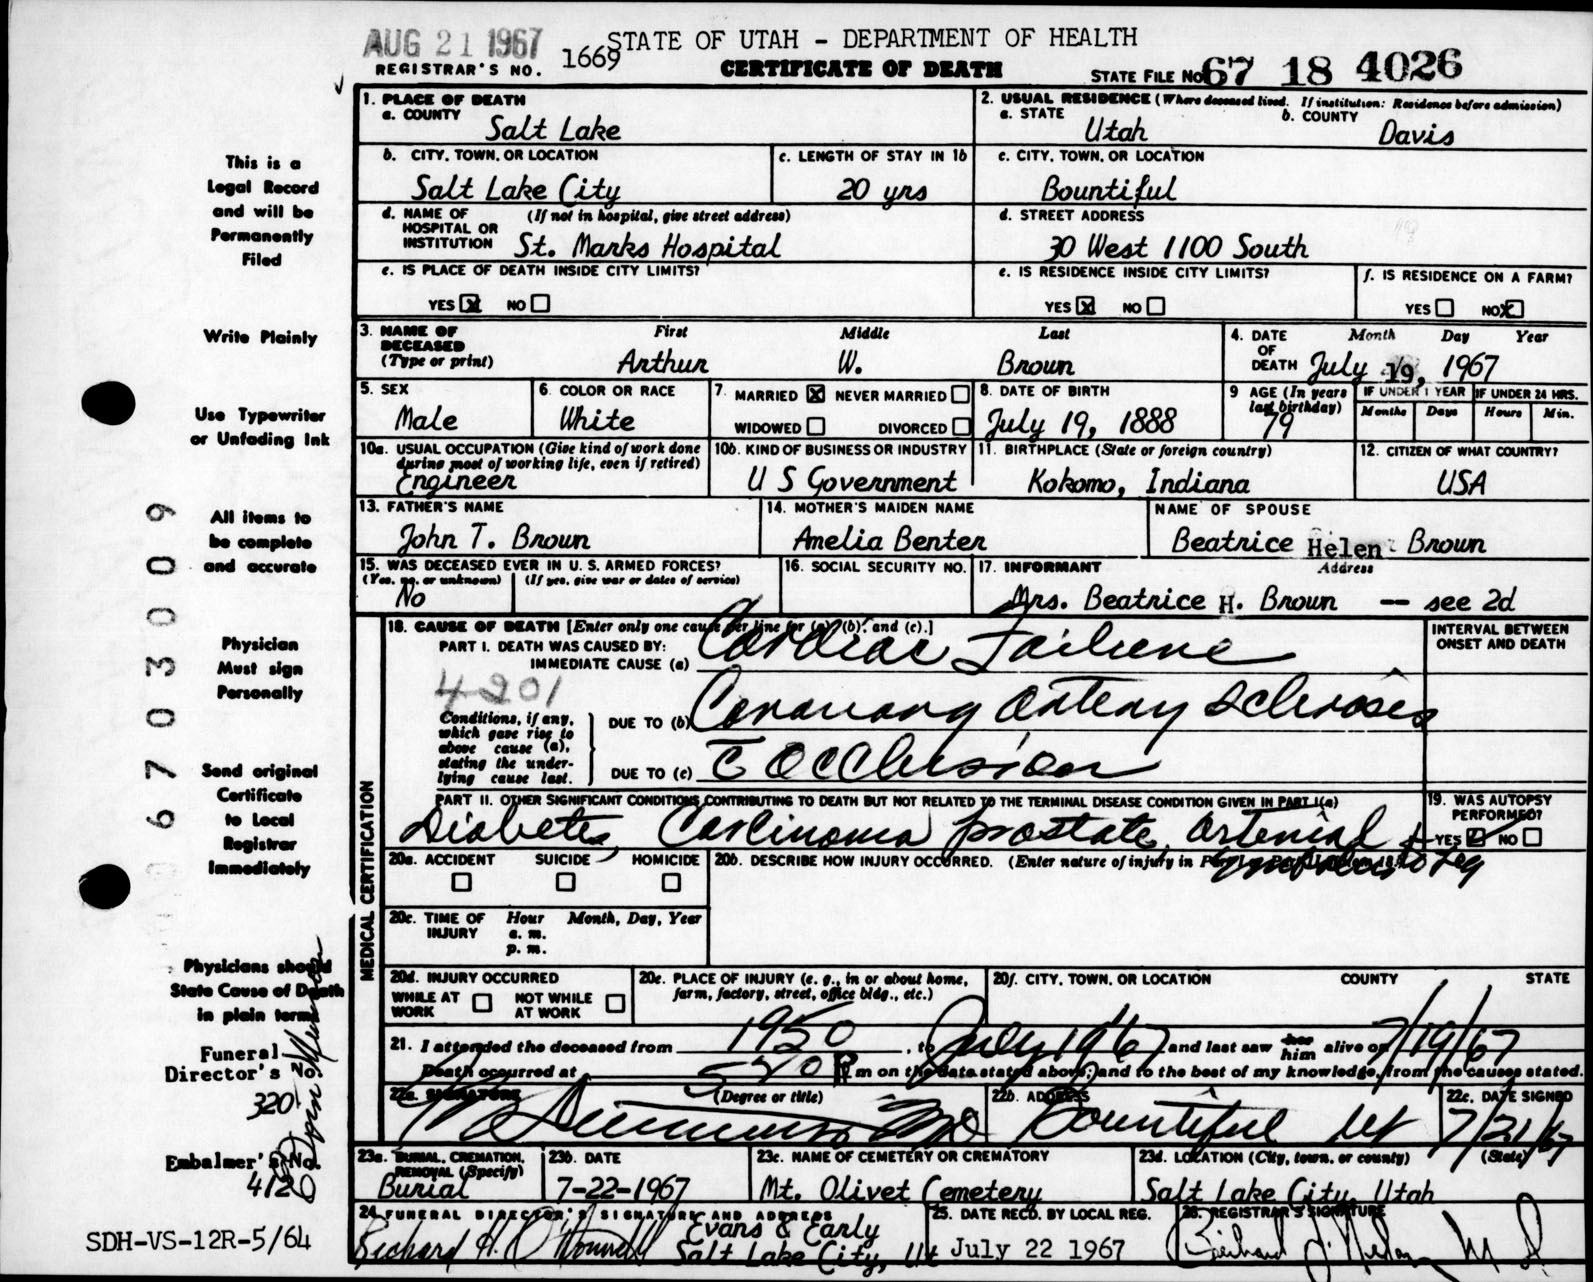 AUG 21 1967
REGISTRAR'S NO. 1669
STATE OF UTAH - DEPARTMENT OF HEALTH
CERTIFICATE OF DEATH
STATE FILE No 67 18 4026
This is a
Legal Record
and will be
Permanently
Filed
Write Plainly
Use Typewriter
or Unfading Ink
All items to
be complete
and accurate
Physician
Must sign
Personally
Send original
Certificate
to Local
Registrar
Immediately
Physicians should
State Cause of Death
in plain terms
Funeral
Director's No.
320
Embalmer's No.
412
SDH-VS-12R-5/64
67 03009
1. PLACE OF DEATH
a. COUNTY
Salt Lake
2. USUAL RESIDENCE (Where deceased lived. If institution: Residence before admission)
a. STATE
Utah
b. COUNTY
Davis
b. CITY, TOWN, OR LOCATION
Salt Lake City
c. LENGTH OF STAY IN 1b
20 yrs
c. CITY, TOWN, OR LOCATION
Bountiful
d. NAME OF HOSPITAL OR INSTITUTION
(If not in hospital, give street address)
St. Marks Hospital
d. STREET ADDRESS
30 West 1100 South
e. IS PLACE OF DEATH INSIDE CITY LIMITS?
YES X NO
e. IS RESIDENCE INSIDE CITY LIMITS?
YES X NO
f. IS RESIDENCE ON A FARM?
YES NO X
3. NAME OF DECEASED
(Type or print)
First Middle Last
Arthur W. Brown
4. DATE OF DEATH
Month Day Year
July 19, 1967
5. SEX
Male
6. COLOR OR RACE
White
7. MARRIED X NEVER MARRIED
WIDOWED DIVORCED
8. DATE OF BIRTH
July 19, 1888
9 AGE (In years last birthday)
79
IF UNDER 1 YEAR
Months Days
IF UNDER 24 HRS.
Hours Min.
10a. USUAL OCCUPATION (Give kind of work done during most of working life, even if retired)
Engineer
10b. KIND OF BUSINESS OR INDUSTRY
U S Government
11. BIRTHPLACE (State or foreign country)
Kokomo, Indiana
12. CITIZEN OF WHAT COUNTRY?
USA
13. FATHER'S NAME
John T. Brown
14. MOTHER'S MAIDEN NAME
Amelia Benter
NAME OF SPOUSE
Beatrice Helen Brown
15. WAS DECEASED EVER IN U. S. ARMED FORCES?
(Yes, no, or unknown) (If yes, give war or dates of service)
No
16. SOCIAL SECURITY NO.
17. INFORMANT
Address
Mrs. Beatrice H. Brown -- see 2d
MEDICAL CERTIFICATION
18. CAUSE OF DEATH [Enter only one cause per line for (a), (b), and (c).]
INTERVAL BETWEEN ONSET AND DEATH
PART I. DEATH WAS CAUSED BY:
IMMEDIATE CAUSE (a) Cardiac Failure
4201
Conditions, if any, which gave rise to above cause (a), stating the underlying cause last.
DUE TO (b) Coronary artery sclerosis
DUE TO (c) c̄ occlusion
PART II. OTHER SIGNIFICANT CONDITIONS CONTRIBUTING TO DEATH BUT NOT RELATED TO THE TERMINAL DISEASE CONDITION GIVEN IN PART I(a)
Diabetes, Carcinoma prostate, arterial
embolus to leg
19. WAS AUTOPSY PERFORMED?
YES NO
20a. ACCIDENT SUICIDE HOMICIDE
20b. DESCRIBE HOW INJURY OCCURRED. (Enter nature of injury in Part I or Part II of item 18.)
20c. TIME OF INJURY
Hour Month, Day, Year
a. m.
p. m.
20d. INJURY OCCURRED
WHILE AT WORK NOT WHILE AT WORK
20e. PLACE OF INJURY (e. g., in or about home, farm, factory, street, office bldg., etc.)
20f. CITY, TOWN, OR LOCATION COUNTY STATE
21. I attended the deceased from 1950, to July 1967 and last saw her him alive on 7/19/67
Death occurred at 520 P m on the date stated above; and to the best of my knowledge, from the causes stated.
22a. SIGNATURE
(Degree or title)
MD
22b. ADDRESS
Bountiful Ut
22c. DATE SIGNED
7/21/67
23a. BURIAL, CREMATION, REMOVAL (Specify)
Burial
23b. DATE
7-22-1967
23c. NAME OF CEMETERY OR CREMATORY
Mt. Olivet Cemetery
23d. LOCATION (City, town, or county) (State)
Salt Lake City, Utah
24. FUNERAL DIRECTOR'S SIGNATURE AND ADDRESS
Richard H. O'Donnell
Evans & Early
Salt Lake City, Ut
25. DATE RECD. BY LOCAL REG.
July 22 1967
26. REGISTRAR'S SIGNATURE